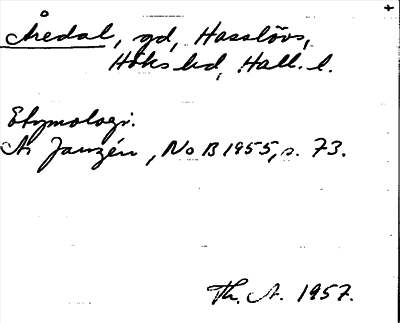 Åredal, gd, Hasslövs,
Höks hd, Hall. l.
Etymologi.
A. Janzén, NoB 1955, s. 73.
Th. A. 1957.